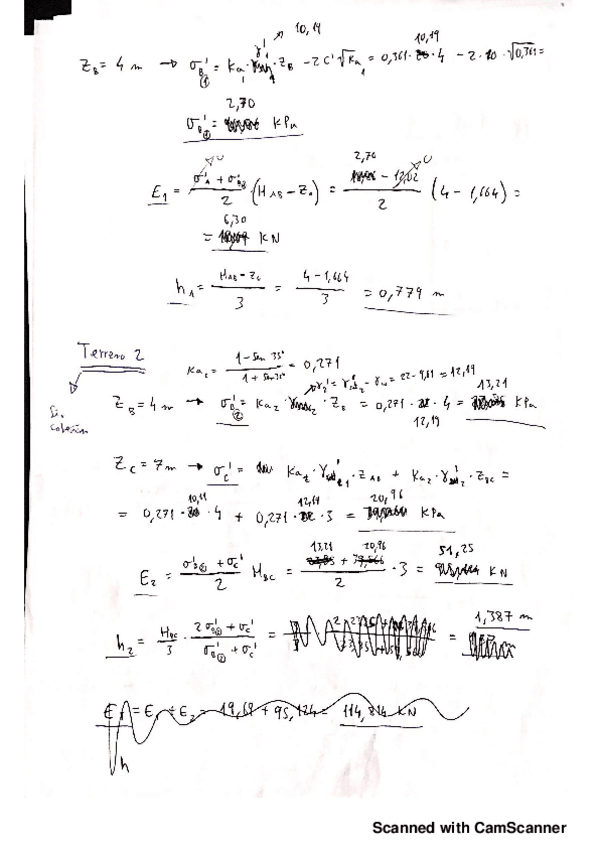 10,19
Z_B = 4 m → σ'_B① = Ka_1 · γ'_1 · Z_B − 2 C' √Ka_1 = 0,361 · 10,19 · 4 − 2 · 10 · √0,361 =
σ'_B① = 2,70 KPa
E_1 = (σ'_A + σ'_B①)/2 (H_AB − Z_0) = (2,70 − 12,02)/2 (4 − 1,664) =
= 6,30 KN
h_1 = (H_AB − Z_c)/3 = (4 − 1,664)/3 = 0,779 m
Terreno 2
Ka_2 = (1 − sen 35°)/(1 + sen 35°) = 0,271
γ'_2 = γ_sat_2 − γ_w = 22 − 9,81 = 12,19
Sin cohesión
Z_B = 4 m → σ'_B② = Ka_2 · Z_B = 0,271 · 12,19 · 4 = 13,21 KPa
Z_C = 7 m → σ'_C = Ka_2 · γ'_1 · Z_AB + Ka_2 · γ'_2 · Z_BC =
= 0,271 · 10,19 · 4 + 0,271 · 12,19 · 3 = 20,96 KPa
E_2 = (σ'_B② + σ'_C)/2 H_BC = (13,21 + 20,96)/2 · 3 = 51,25 KN
h_2 = H_BC/3 · (2σ'_B② + σ'_C)/(σ'_B② + σ'_C) = 1,387 m
E_T = E_1 + E_2 = 19,69 + 95,124 = 114,814 KN
h
Scanned with CamScanner